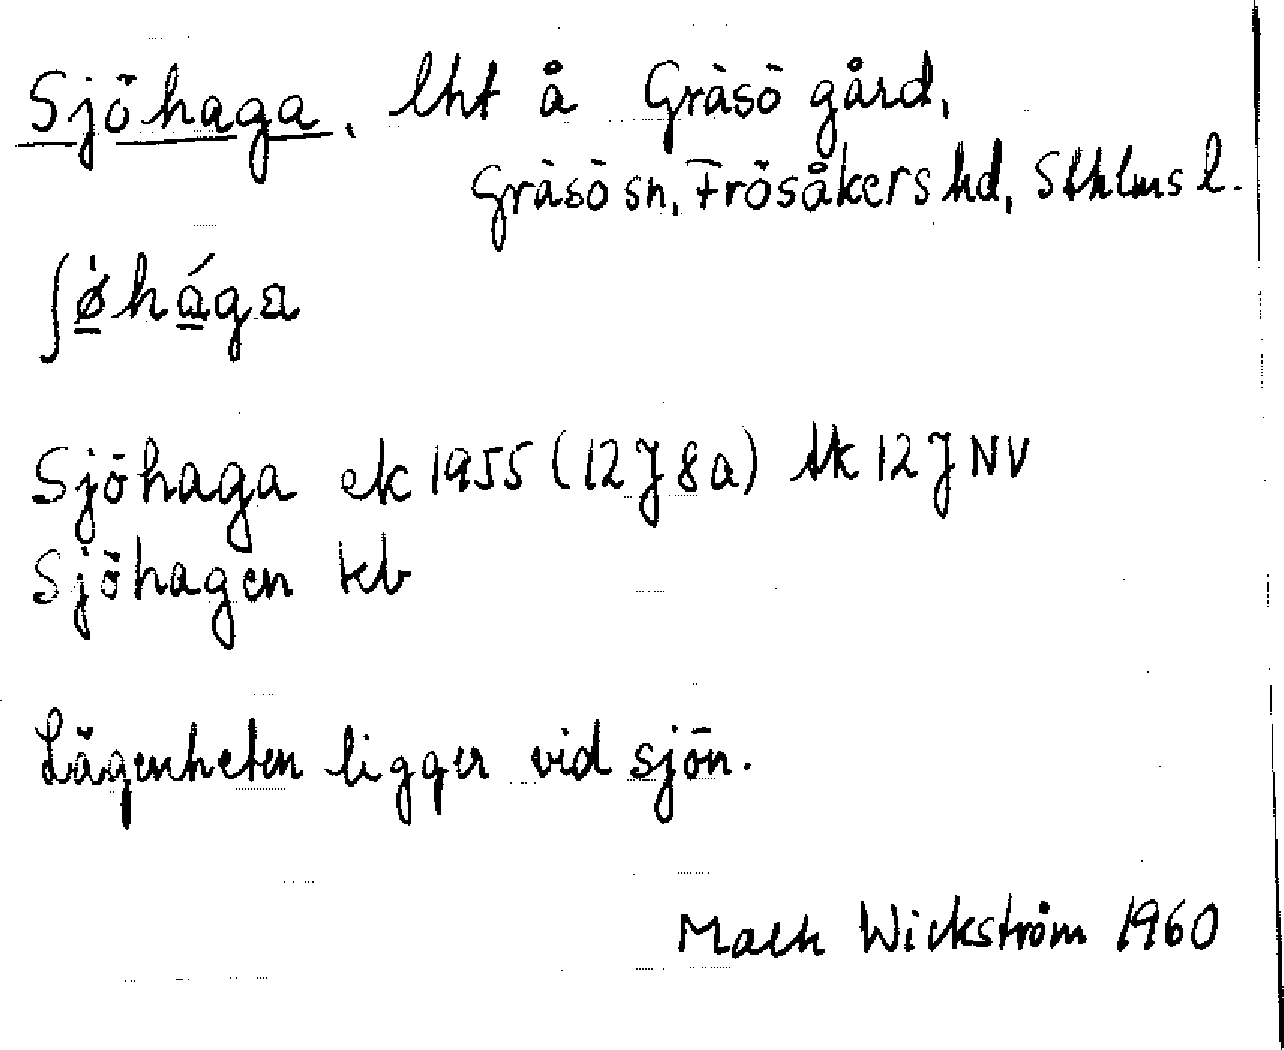 Sjöhaga, lht å Gräsö gård,
Gräsö sn, Frösåkers hd, Sthlms l.
ʃø̀hága
Sjöhaga ek 1955 (12J8a) tk 12J NV
Sjöhagen kb
Lägenheten ligger vid sjön.
Wickström 1960